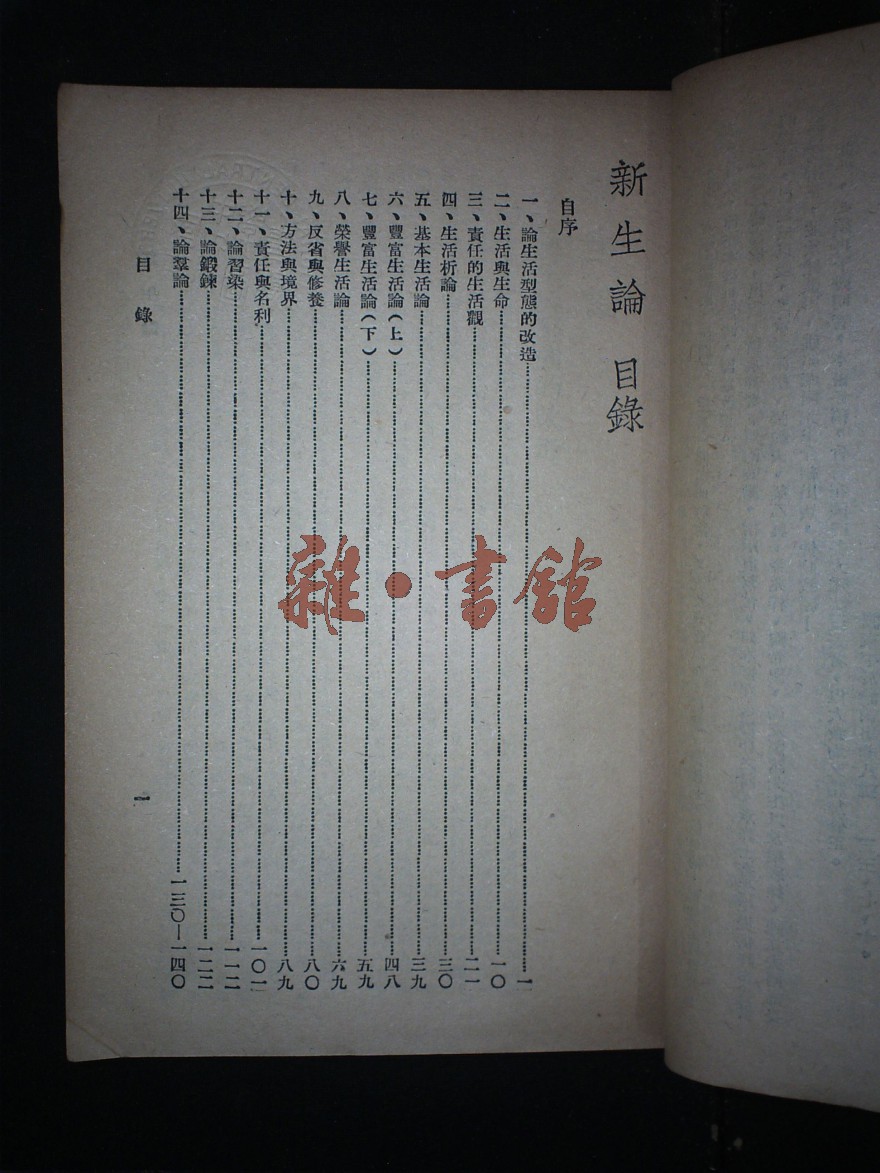 新生論 目錄
自序
一、論生活型態的改造……一
二、生活與生命……一〇
三、責任的生活觀……二一
四、生活析論……三〇
五、基本生活論……三九
六、豐富生活論(上)……四八
七、豐富生活論(下)……五九
八、榮譽生活論……六九
九、反省與修養……八〇
十、方法與境界……八九
十一、責任與名利……一〇一
十二、論習染……一一二
十三、論鍛鍊……一二二
十四、論羣論……一三〇—一四〇
目錄 一
雜·書館